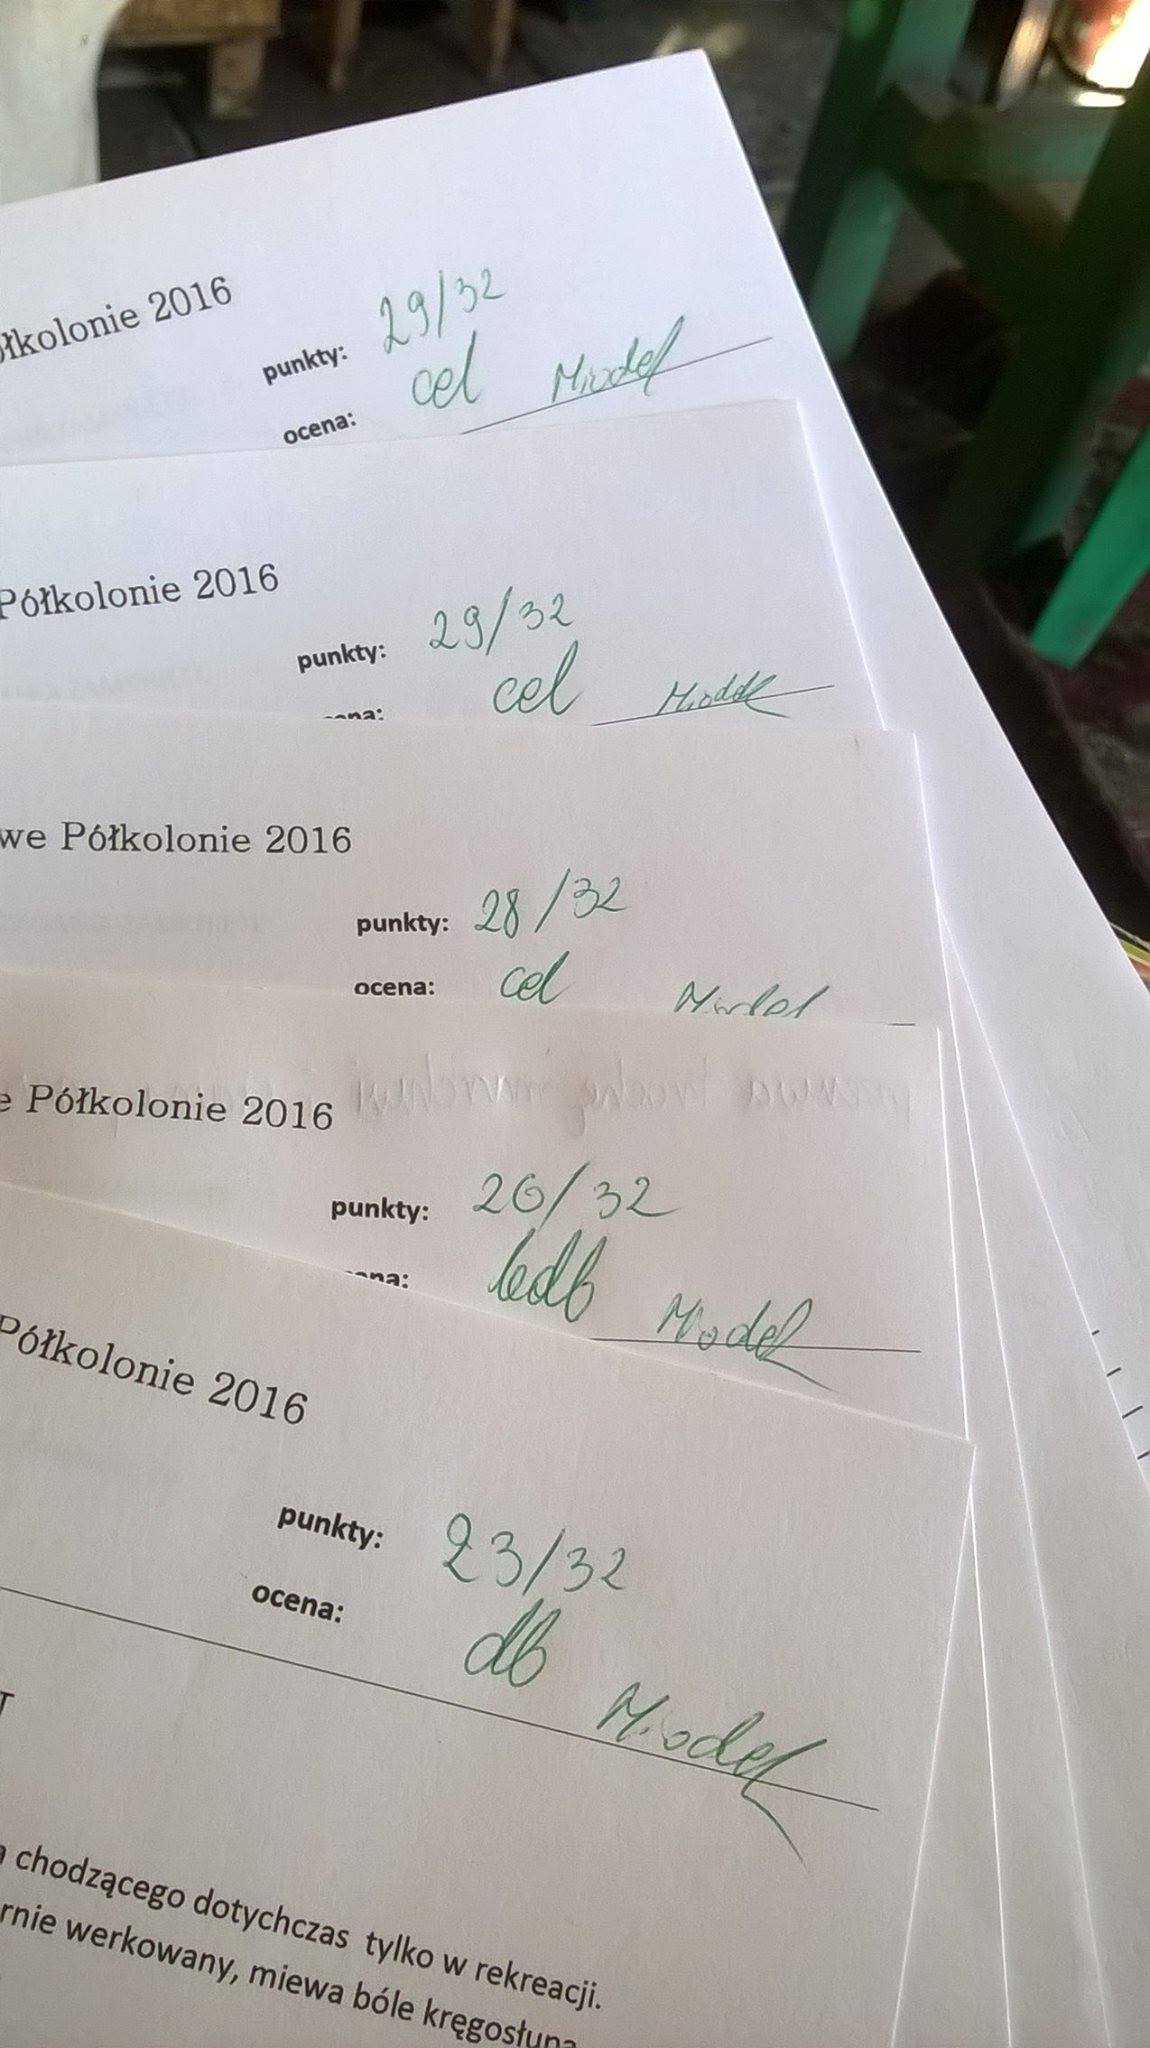 ółkolonie 2016
punkty: 29/32
ocena: cel Miodek
Półkolonie 2016
punkty: 29/32
cel Miodek
we Półkolonie 2016
punkty: 28/32
ocena: cel
e Półkolonie 2016
punkty: 26/32
bdb Miodek
Półkolonie 2016
punkty: 23/32
ocena: db
Miodek
chodzącego dotychczas tylko w rekreacji.
rnie werkowany, miewa bóle kręgosłupa